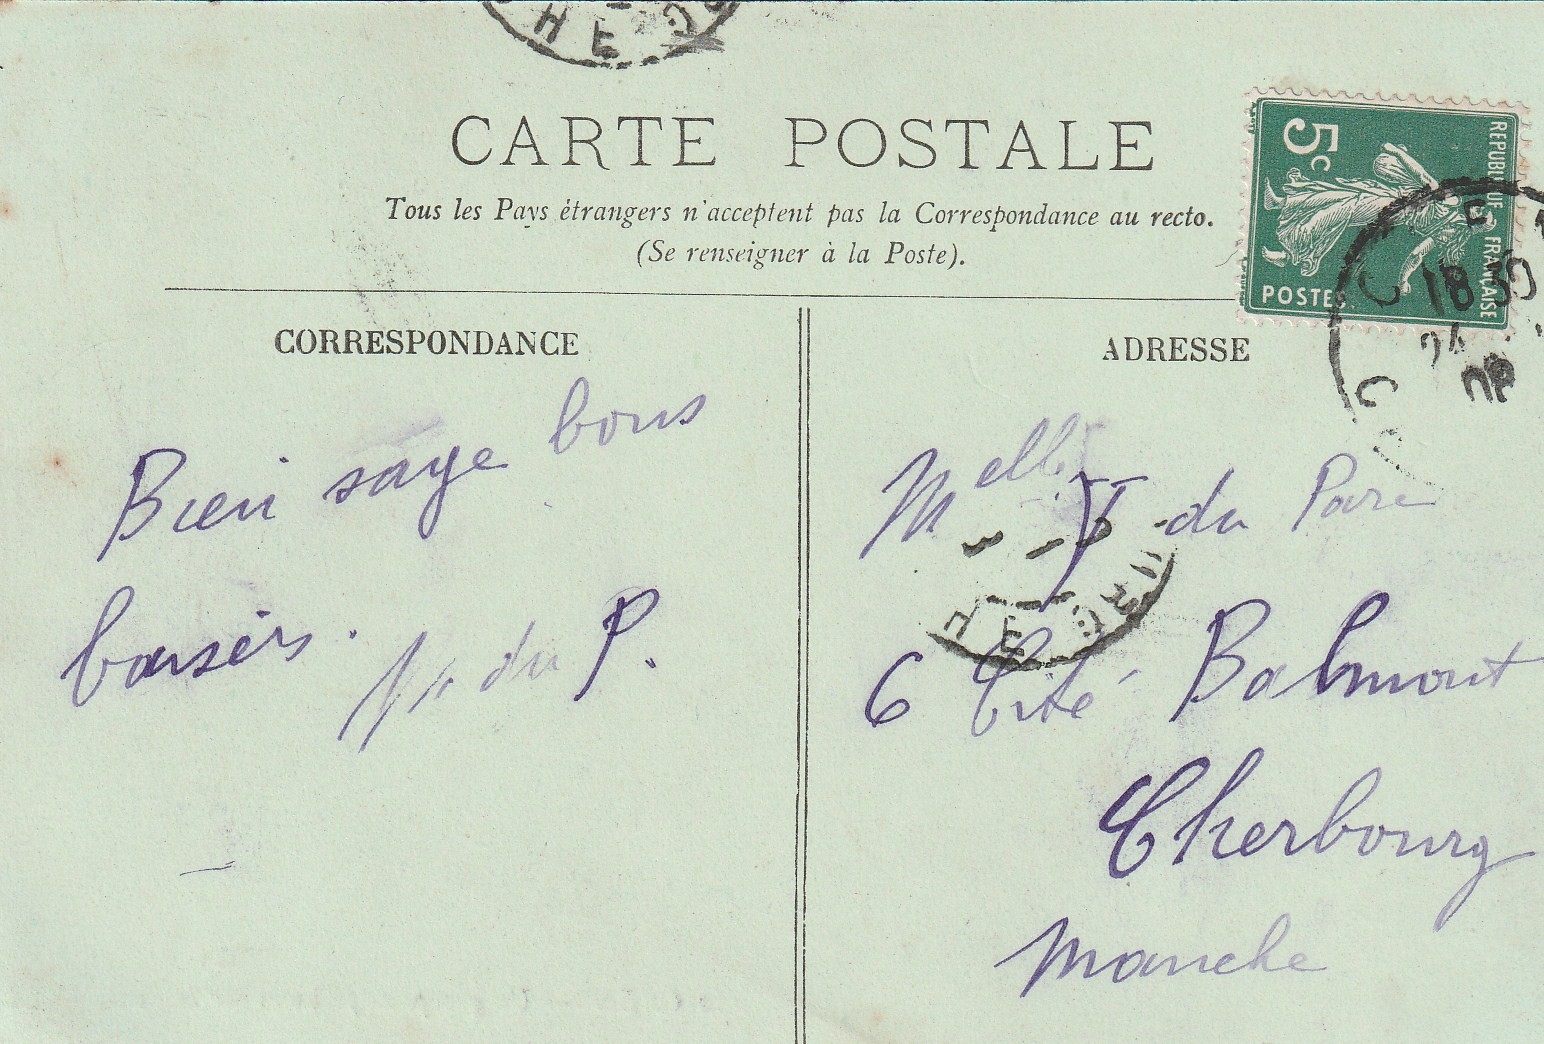 CARTE POSTALE
Tous les Pays étrangers n'acceptent pas la Correspondance au recto.
(Se renseigner à la Poste).
CORRESPONDANCE
Bien sage bons
baisers. du P.
ADRESSE
Melle Y du Parc
6 Cité Balmont
Cherbourg
Manche
5c
REPUBLIQUE FRANÇAISE
POSTES
18 30
24